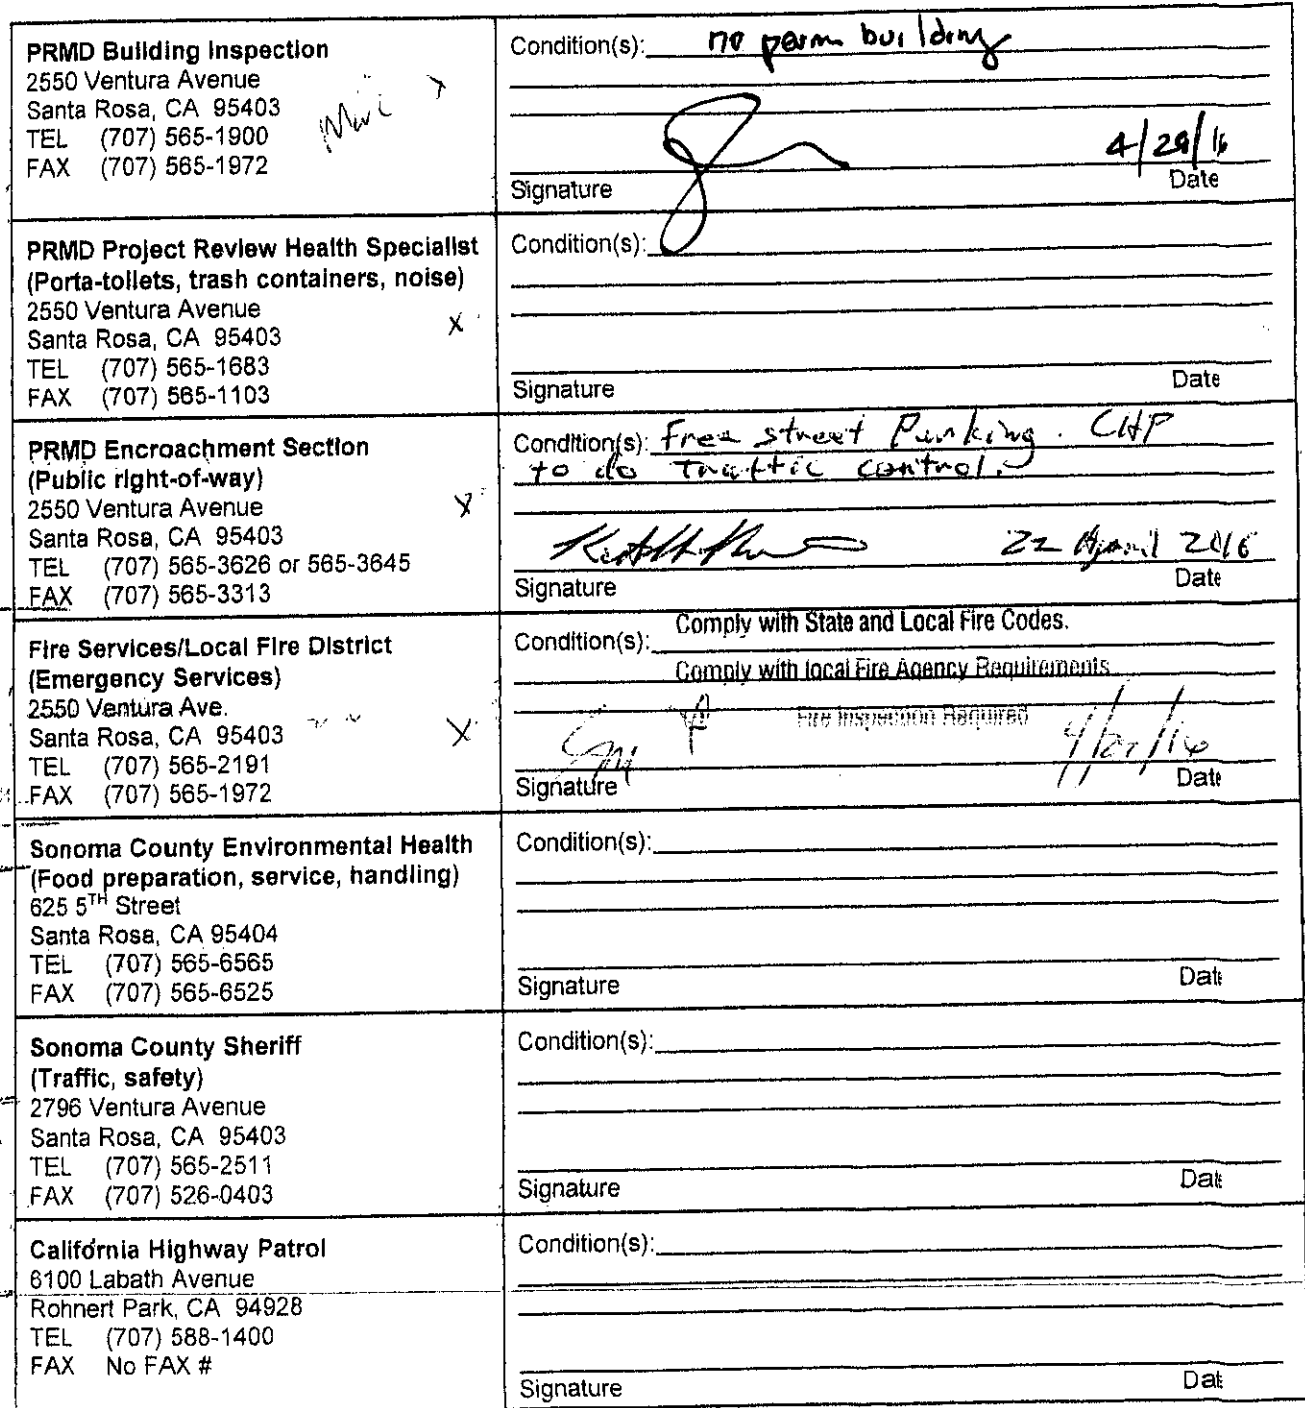 PRMD Building Inspection
2550 Ventura Avenue
Santa Rosa, CA 95403
TEL (707) 565-1900
FAX (707) 565-1972
Condition(s): no perm building
4/29/16
Signature Date
PRMD Project Review Health Specialist
(Porta-toilets, trash containers, noise)
2550 Ventura Avenue
Santa Rosa, CA 95403 X
TEL (707) 565-1683
FAX (707) 565-1103
Condition(s):
Signature Date
PRMD Encroachment Section
(Public right-of-way)
2550 Ventura Avenue X
Santa Rosa, CA 95403
TEL (707) 565-3626 or 565-3645
FAX (707) 565-3313
Condition(s): Free street Parking. CHP
to do traffic control.
22 April 2016
Signature Date
Fire Services/Local Fire District
(Emergency Services)
2550 Ventura Ave.
Santa Rosa, CA 95403 X
TEL (707) 565-2191
FAX (707) 565-1972
Condition(s): Comply with State and Local Fire Codes.
Comply with local Fire Agency Requirements
Fire Inspection Required
Signature Date
Sonoma County Environmental Health
(Food preparation, service, handling)
625 5TH Street
Santa Rosa, CA 95404
TEL (707) 565-6565
FAX (707) 565-6525
Condition(s):
Signature Date
Sonoma County Sheriff
(Traffic, safety)
2796 Ventura Avenue
Santa Rosa, CA 95403
TEL (707) 565-2511
FAX (707) 526-0403
Condition(s):
Signature Date
California Highway Patrol
6100 Labath Avenue
Rohnert Park, CA 94928
TEL (707) 588-1400
FAX No FAX #
Condition(s):
Signature Dat